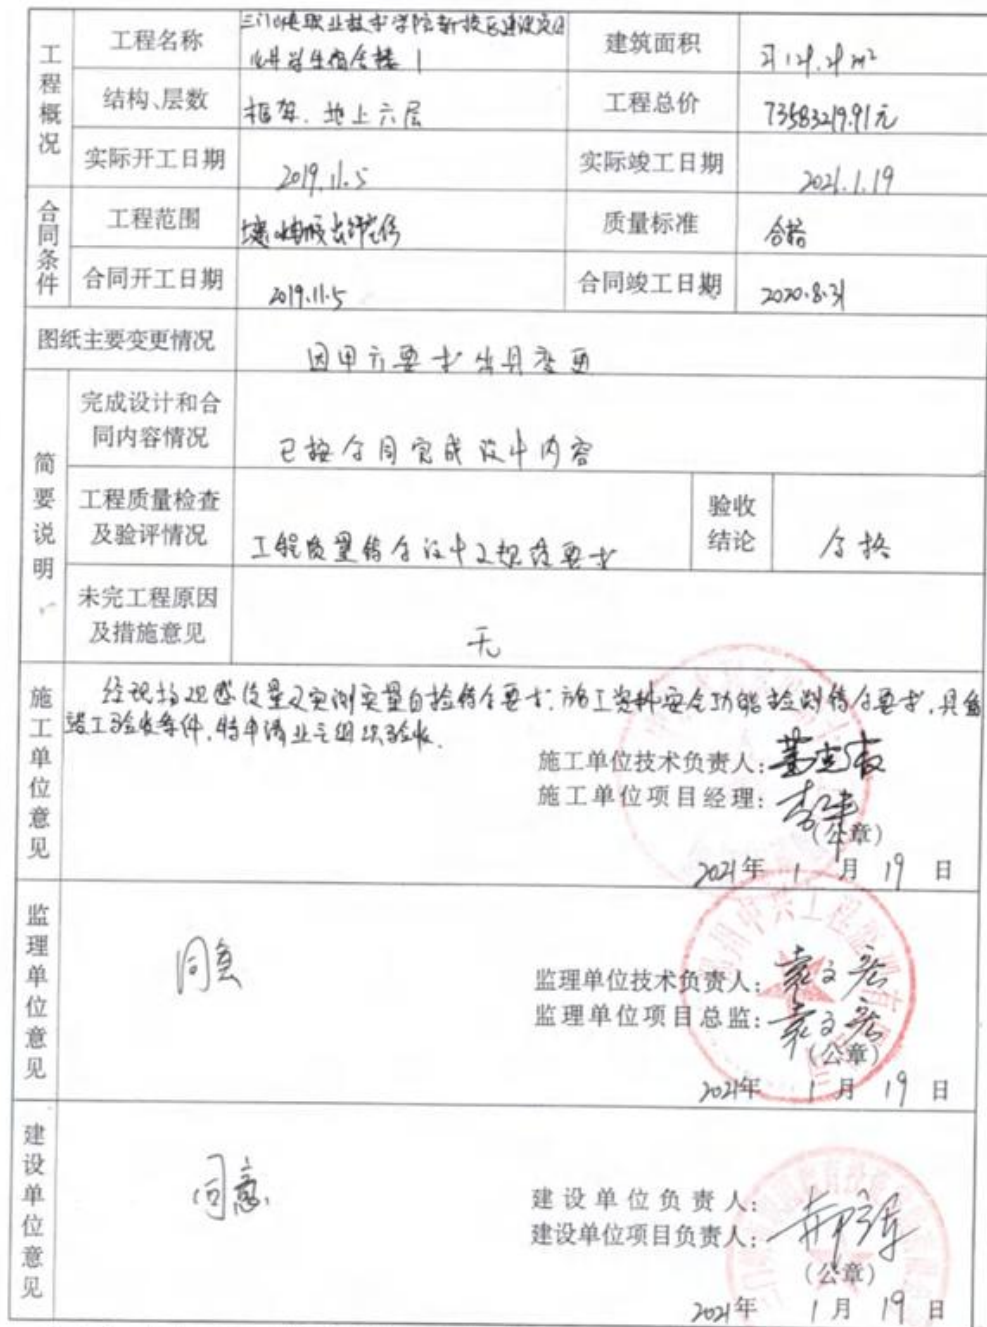 工程概况
工程名称
三门峡职业技术学院新校区建设项目
学生宿舍楼1
建筑面积
m²
结构、层数
框架、地上六层
工程总价
73583219.91元
实际开工日期
2019.11.5
实际竣工日期
2021.1.19
合同条件
工程范围
质量标准
合格
合同开工日期
2019.11.5
合同竣工日期
2020.8.31
图纸主要变更情况
因甲方要求出具变更
简要说明
完成设计和合
同内容情况
已按合同完成设计内容
工程质量检查
及验评情况
工程质量符合设计及规范要求
验收
结论
合格
未完工程原因
及措施意见
无
施工单位意见
经现场观感质量及实测实量自检符合要求,施工资料安全功能检测符合要求,具备
竣工验收条件,特申请业主组织验收.
施工单位技术负责人:
施工单位项目经理:
(公章)
2021年 1 月 19 日
监理单位意见
同意
监理单位技术负责人: 袁文宏
监理单位项目总监: 袁文宏
(公章)
2021年 1 月 19 日
建设单位意见
同意
建设单位负责人:
建设单位项目负责人:
(公章)
2021年 1 月 19 日